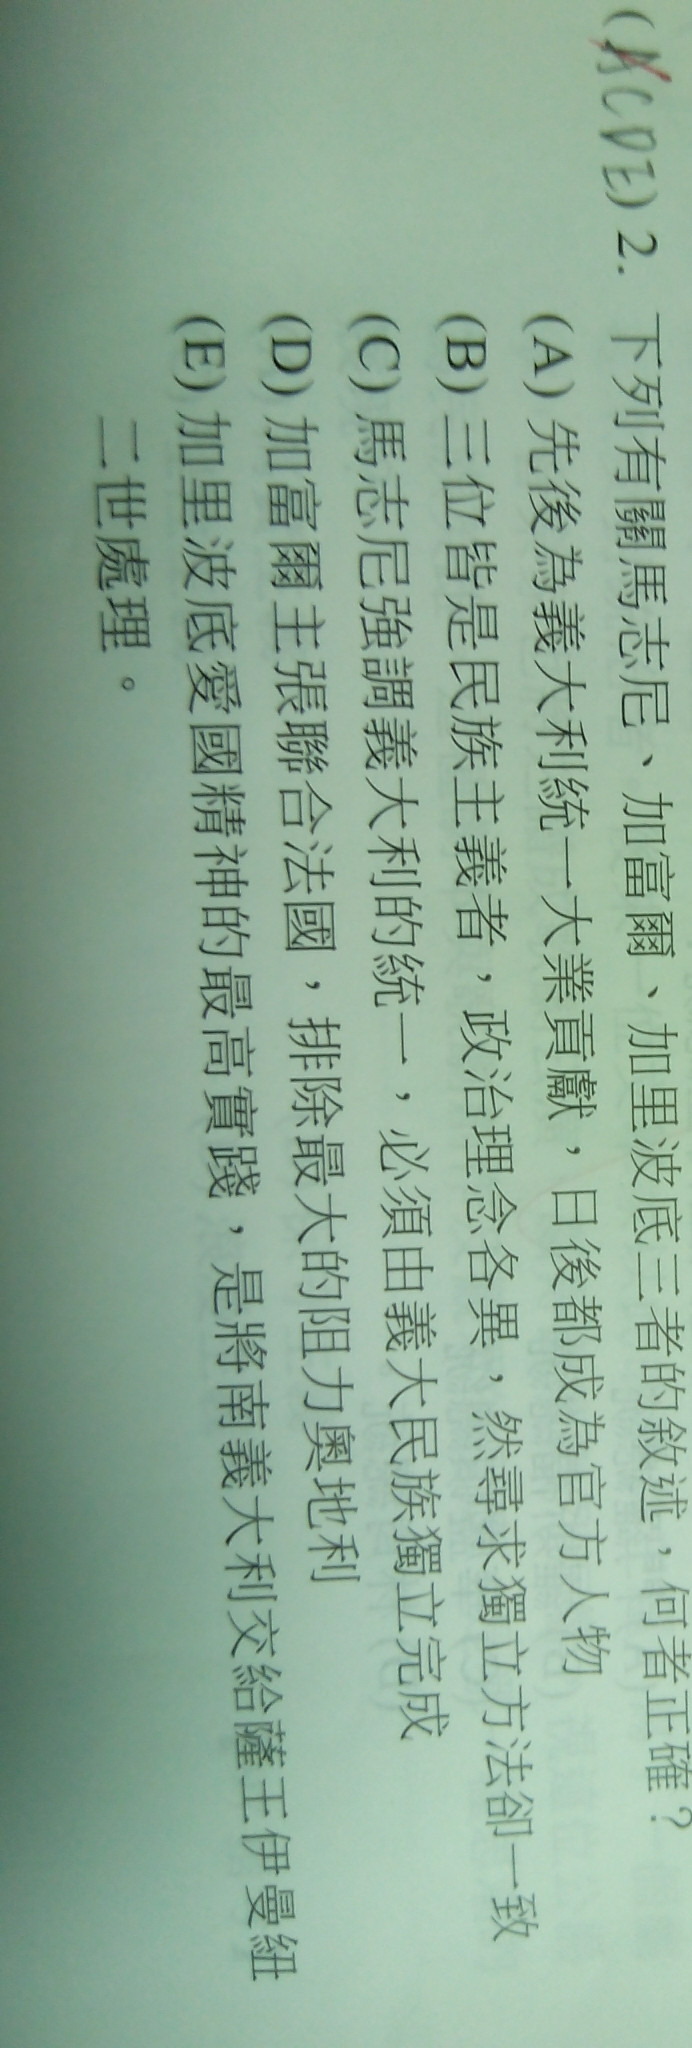 (ACDE) 2. 下列有關馬志尼、加富爾、加里波底三者的敘述，何者正確？
(A) 先後為義大利統一大業貢獻，日後都成為官方人物
(B) 三位皆是民族主義者，政治理念各異，然尋求獨立方法卻一致
(C) 馬志尼強調義大利的統一，必須由義大民族獨立完成
(D) 加富爾主張聯合法國，排除最大的阻力奧地利
(E) 加里波底愛國精神的最高實踐，是將南義大利交給薩王伊曼紐
二世處理。